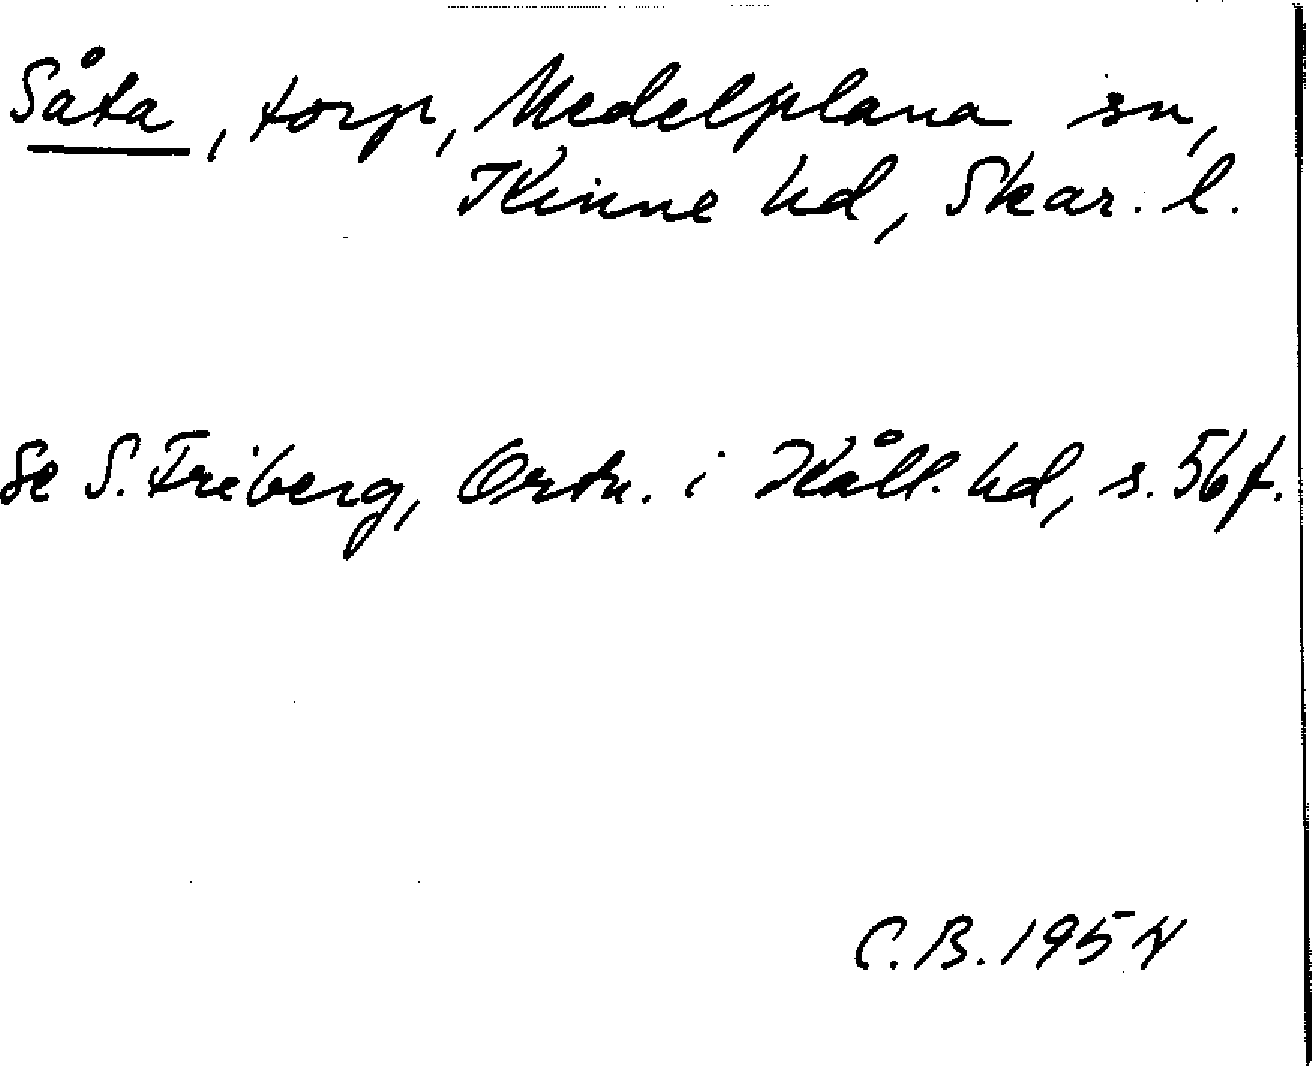 Såta, torp, Medelplana sn,
Kinne hd, Skar. l.
Se S. Friberg, Ortn. i Kåll. hd, s. 56 f.
C.B. 1954